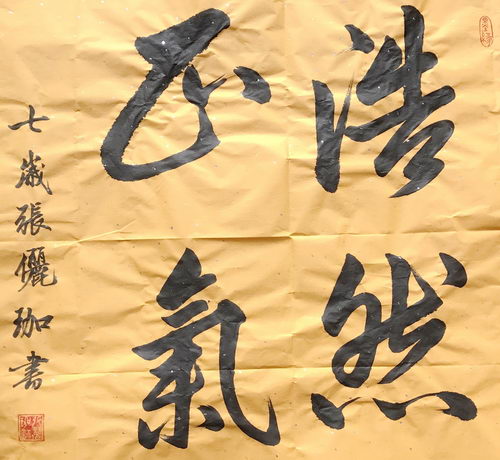 浩然
正氣
七歲張儷珈書